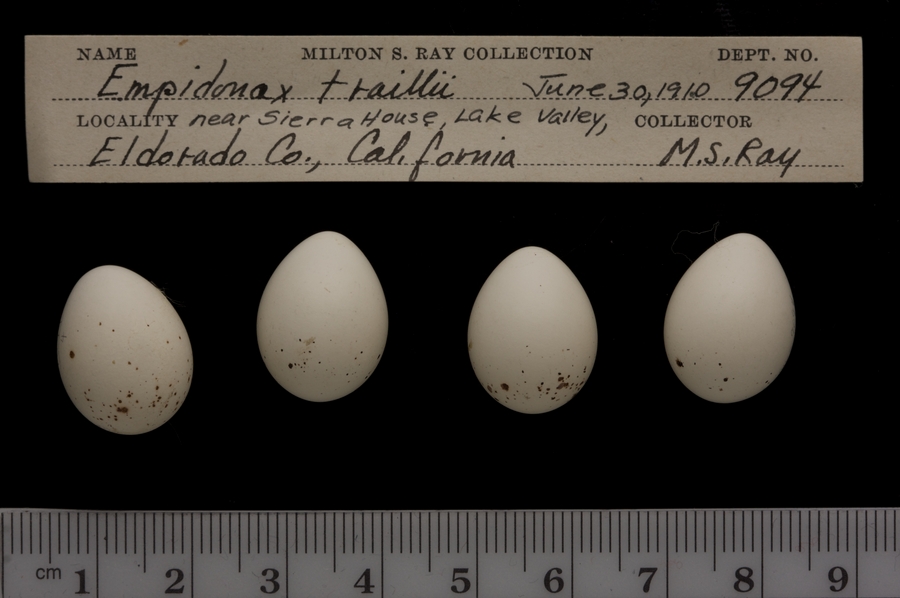 NAME MILTON S. RAY COLLECTION DEPT. NO.
Empidonax traillii June 30, 1910 9094
LOCALITY near Sierra House, Lake Valley, COLLECTOR
Eldorado Co., California M.S. Ray
cm 1 2 3 4 5 6 7 8 9